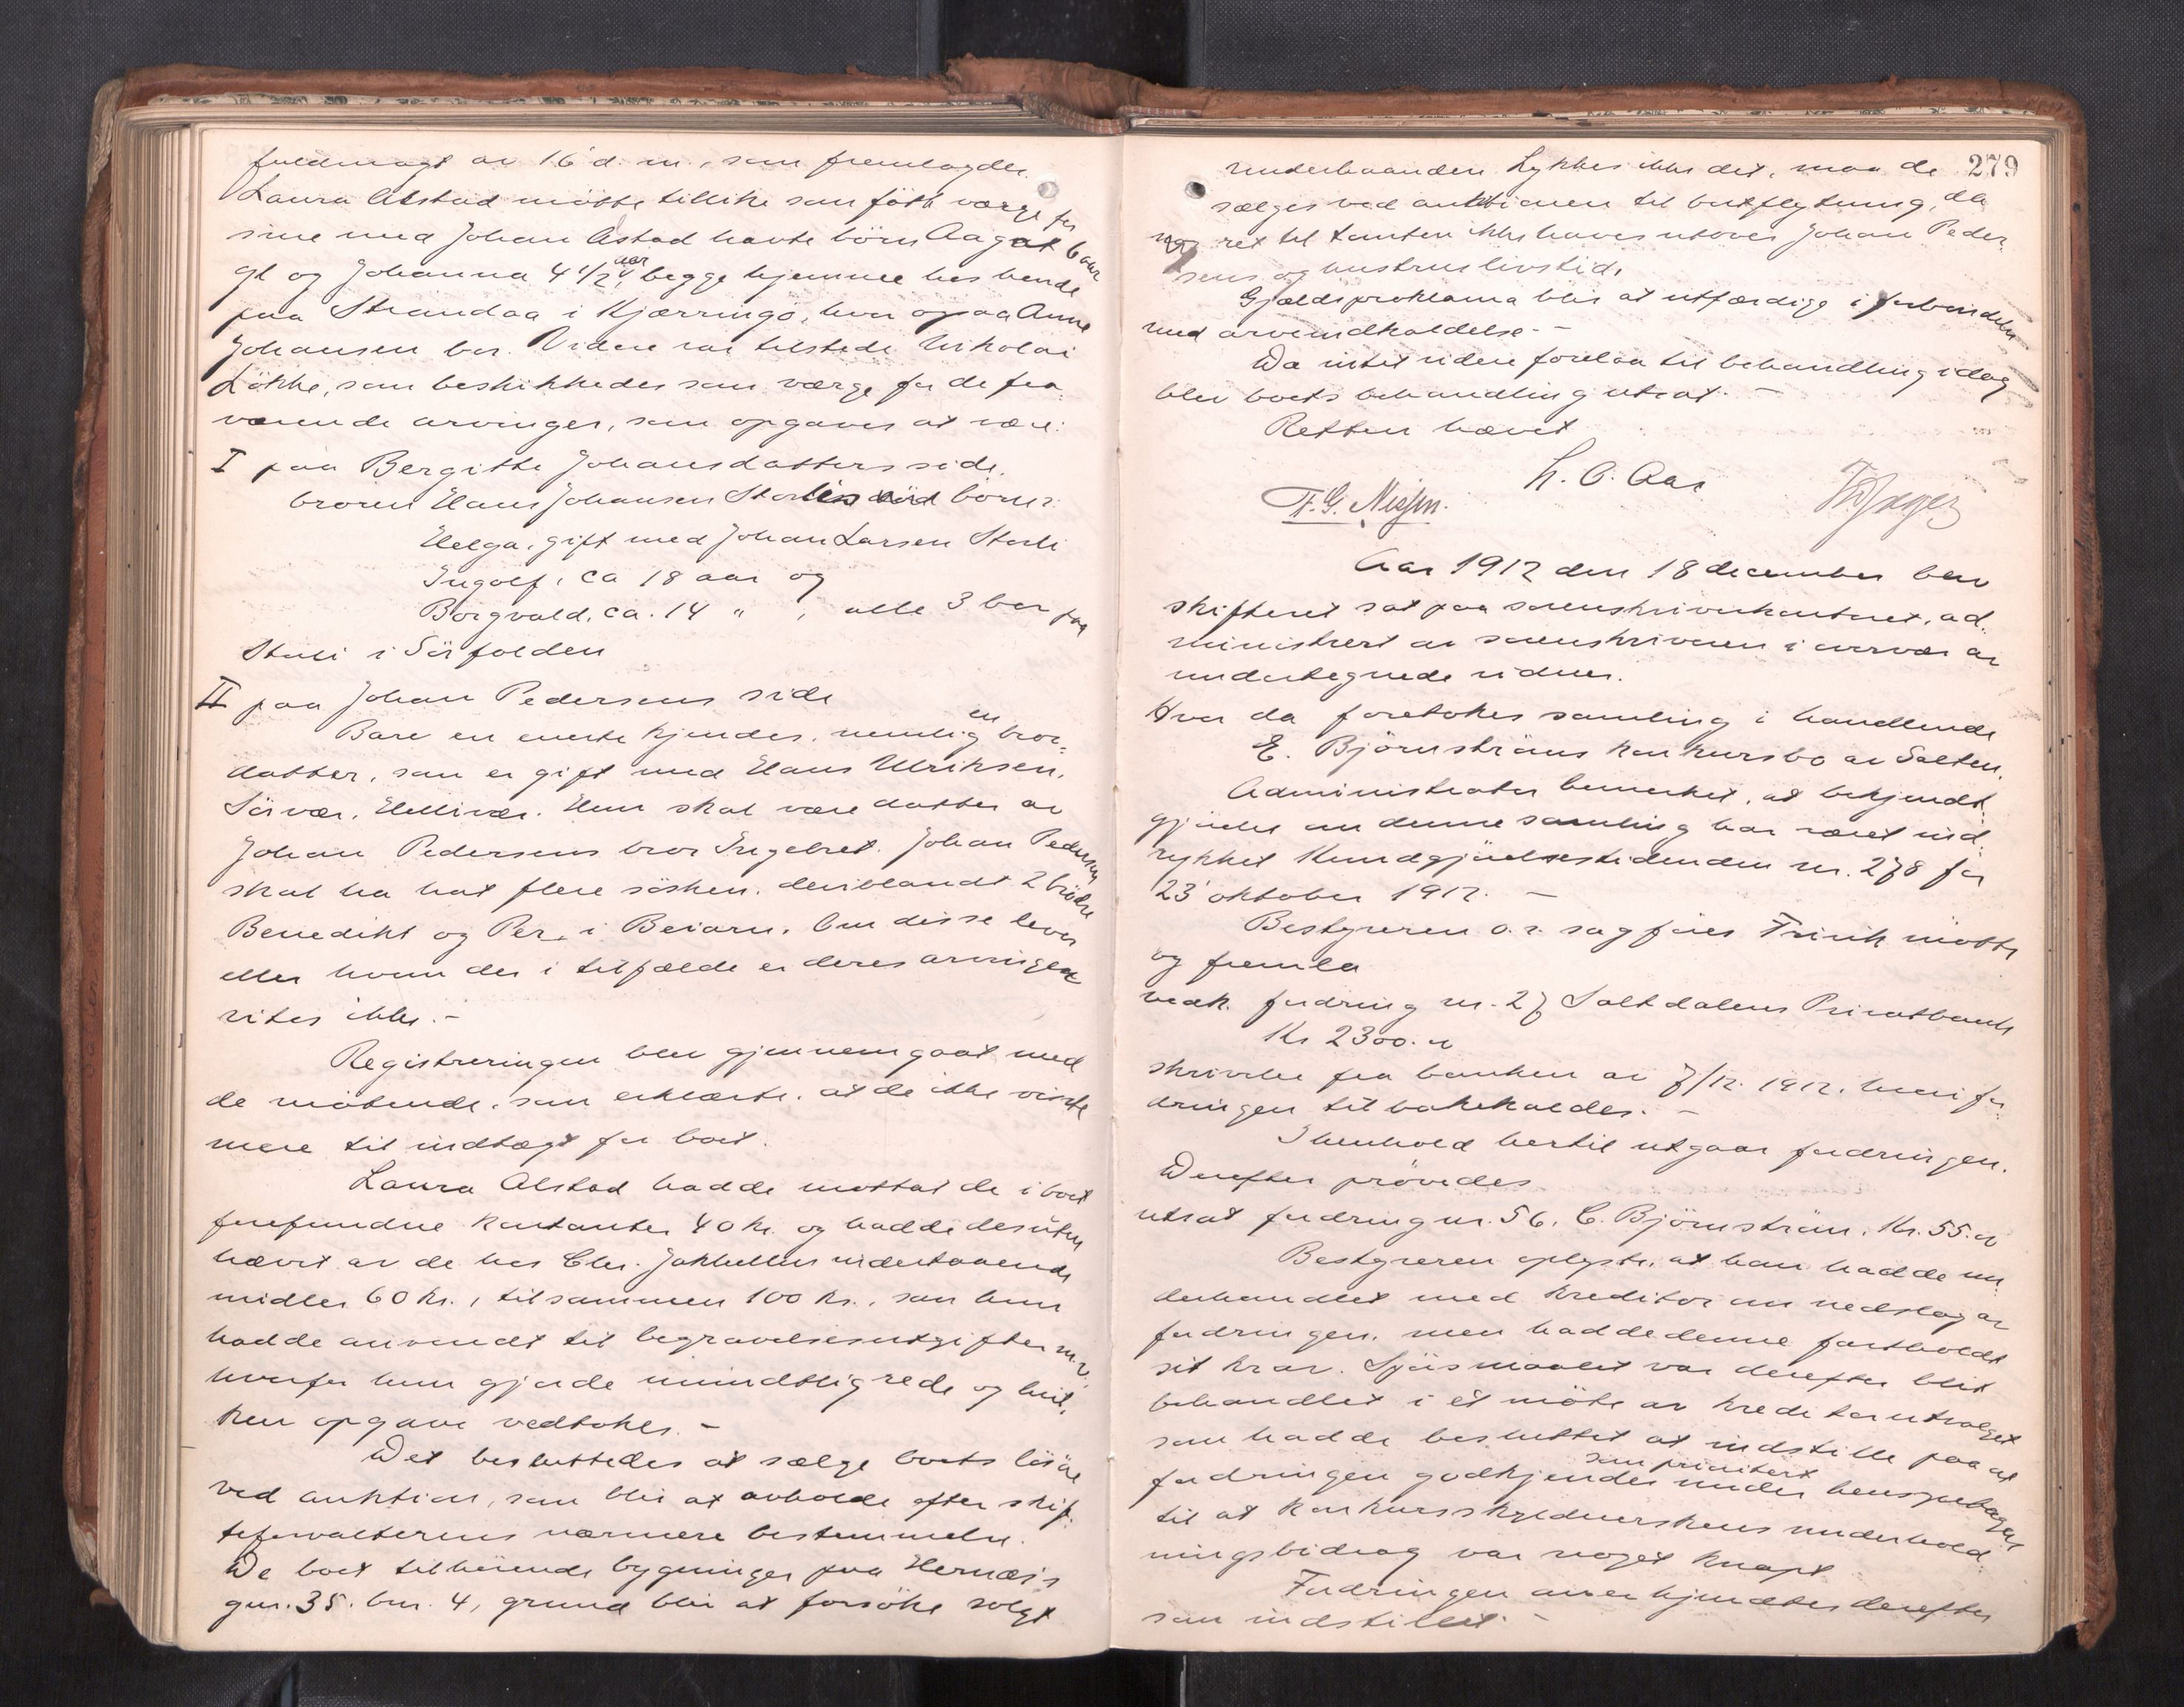 fuldmagt av 16' d. m., som fremlagdes.
Laura Alstad møtte tillike som født værge for
sine med Johan Alstad havte børn Aagot 6 aar
gl og Johanna 4 1/2 aar, begge hjemme hos hende
paa Strandaa i Kjærringø, hvor ogsaa Anne
Johansen bor. Videre var tilstede Nikolai
Løkke, som beskikkedes som værge for de fra-
værende arvinger, som opgaves at være:
I paa Bergitte Johansdatters side.
broren Hans Johansen Storlis børn:
Helga, gift med Johan Larsen Storli
Ingolf, ca 18 aar og
Borgvald, ca. 14 " , alle 3 bor paa
Storli i Sørfolden
II paa Johan Pedersens side
Bare en eneste kjendes, nemlig en bror-
datter, som er gift med Hans Ulriksen,
Sørvær, Helligvær. Hun skal være datter av
Johan Pedersens bror Ingebret. Johan Pedersen
skal ha hat flere søsken, deriblandt 2 brødre
Benedikt og Per, i Beiarn. Om disse lever
eller hvem der i tilfælde er deres arvinger
vites ikke.-
Registreringen blev gjennemgaat med
de møtende, som erklærte, at de ikke visste
mere til indtægt for boet.
Laura Alstad hadde mottat de i boet
forefundne kontanter 40 kr. og hadde desuten
hævet av de hos Chr. Jakhelln indestaaende
midler 60 kr., tilsammen 100 kr., som hun
hadde anvendt til begravelsesutgifter m. v.
hvorfor hun gjorde mundtlig rede og hvil-
ken opgave vedtokes.-
Det besluttedes at sælge boets løsøre
ved auktion, som blir at avholde efter skif-
teforvalterens nærmere bestemmelse.
De boet tilhørende bygninger paa Hernæs
gnr. 35. bnr. 4, grund blir at forsøke solgt
279
underhaanden. Lykkes ikke det, maa de
sælges ved auktionen til bortflytning, da
ret til tomten ikke haves utover Johan Peder-
sens og hustrus livstid.
Gjældsproklama blir at utfærdige i forbindelse
med arveindkaldelse.-
Da intet videre forelaa til behandling idag
blev boets behandling utsat.-
Retten hævet
L. O. Aas
F. G. Nissen.
Aar 1912 den 18 december blev
skifteret sat paa sorenskriverkontoret, ad-
ministrert av sorenskriveren i overvær av
undertegnede vidner.
Hvor da foretokes samling i handlende
E. Bjørnstrøms konkursbo av Salten.
Administrator bemerket, at bekjendt-
gjørelse om denne samling har været ind-
rykket Kundgjørelsestidenden nr. 278 for
23' oktober 1912.-
Bestyreren o. r. sagfører Frivik møtte
og fremla
vedk. fordring nr. 27 Saltdalens Privatbank
Kr 2300.00
skrivelse fra banken av 7/12. 1912. hvori for-
dringen tilbakekaldes.-
I henhold hertil utgaar fordringen.
Derefter prøvedes
utsat fordring nr. 56, C. Bjørnstrøm. Kr. 55.00
Bestyreren oplyste, at han hadde un-
derhandlet med kreditor om nedslag av
fordringen, men hadde denne fastholdt
sit krav. Spørsmaalet var derefter blit
behandlet i et møte av kreditorutvalget
som hadde besluttet at indstille paa at
fordringen godkjendes som prioritert under hensyntagen
til at konkursskyldnerskens underhold-
ningsbidrag var noget knapt
Fordringen anerkjendtes derefter
som indstillet.-